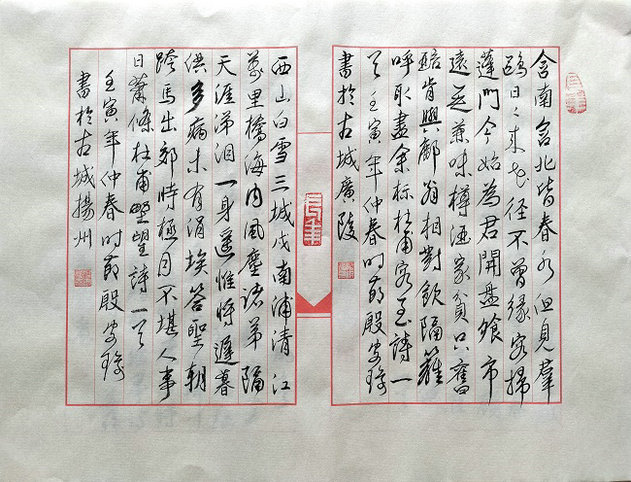 舍南舍北皆春水但見羣
鷗日〻來花徑不曾緣客掃
蓬門今始為君開盤飧市
遠無兼味樽酒家貧只舊
醅肯與鄰翁相對飲隔籬
呼取盡余杯杜甫客至詩一
首壬寅年仲春時節殷
書於古城廣陵
西山白雪三城戍南浦清江
萬里橋海內風塵諸弟隔
天涯涕泪一身遥惟將遲暮
供多病未有涓埃答聖朝
跨馬出郊時極目不堪人事
日蕭條杜甫野望詩一首
壬寅年仲春時節殷
書於古城揚州